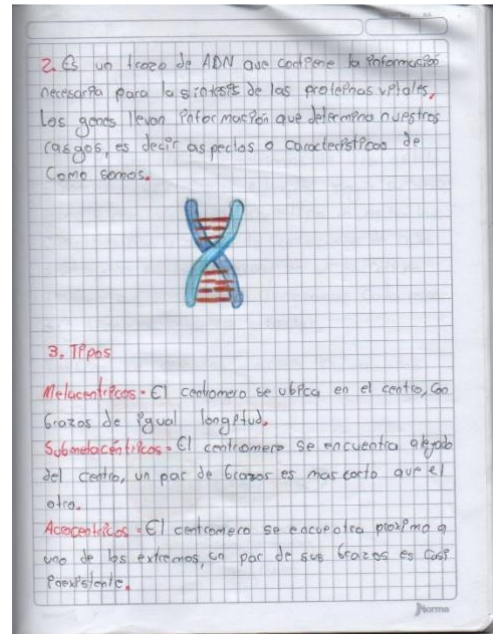 2. Es un trozo de ADN que contiene la información
necesaria para la sintesis de las proteinas vitales.
Los genes llevan información que determina nuestros
rasgos, es decir aspectos o caracteristicas de
Como somos.
3. Tipos
Metacentricos - El centromero se ubica en el centro, con
brazos de igual longitud.
Submetacéntricos - El centromero se encuentra alejado
del centro, un par de brazos es mas corto que el
otro.
Acrocentricos - El centromero se encuentra proximo a
uno de los extremos, un par de sus brazos es casi
inexistente.
Norma